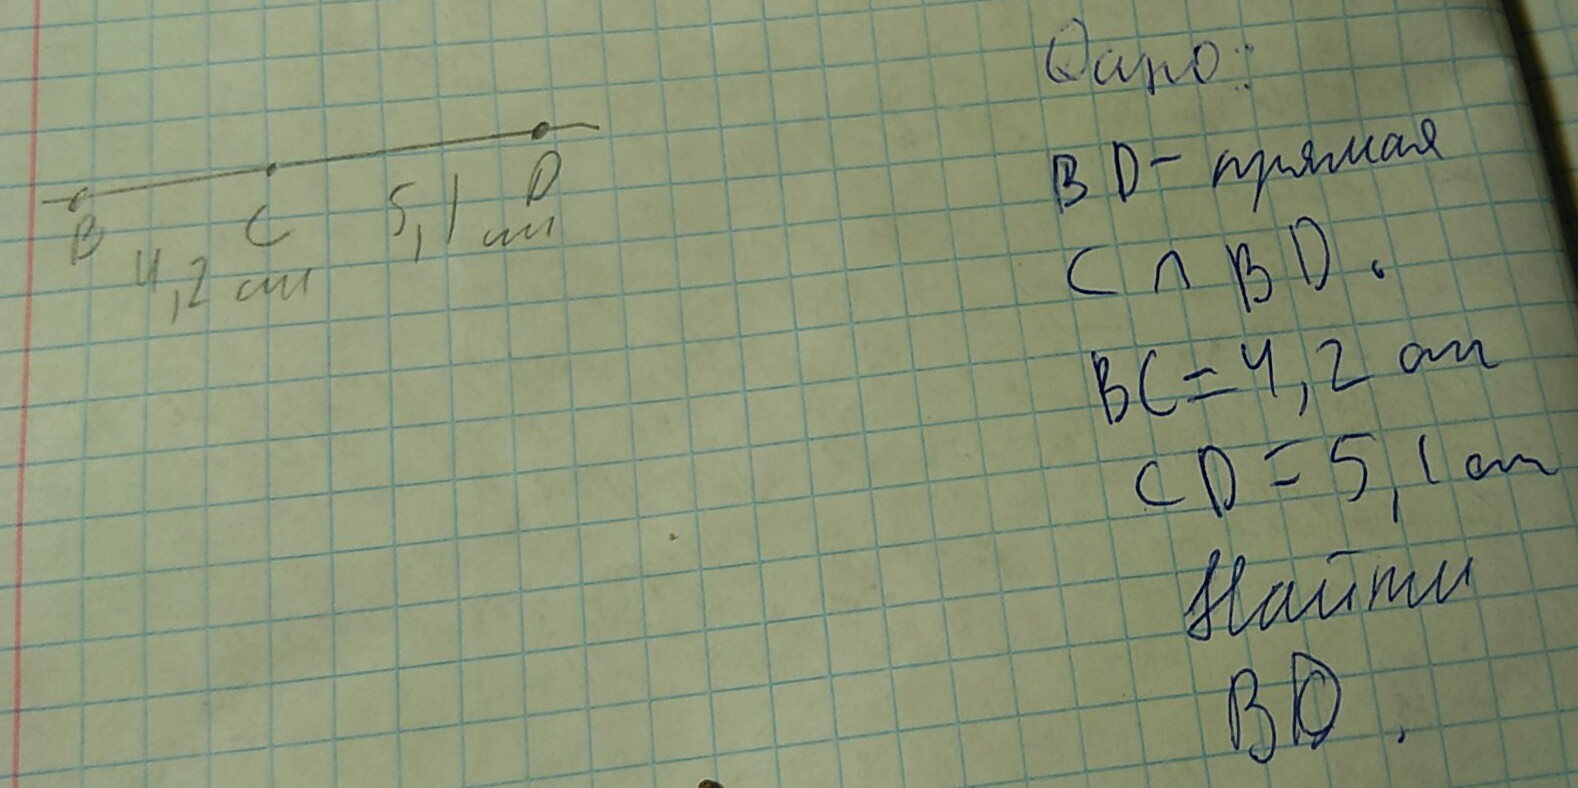 B
C
D
4,2 см
5,1 см
Дано:
BD - прямая
C ∩ BD.
BC = 4,2 см
CD = 5,1 см
Найти
BD.